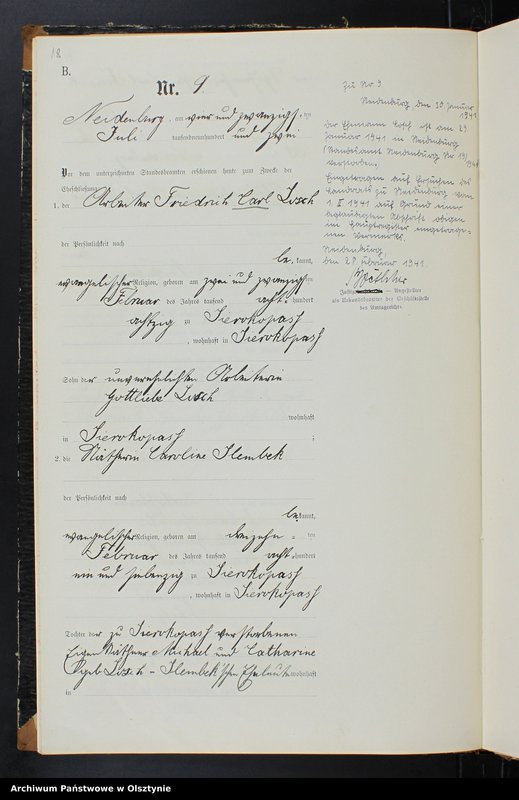 18
B.
Nr. 9
Neidenburg, am vier und zwanzigsten
Juli tausendneunhundert und zwei
Vor dem unterzeichneten Standesbeamten erschienen heute zum Zwecke der
Eheschließung:
1. der Arbeiter Friedrich Carl
der Persönlichkeit nach
be kannt,
evangelischer Religion, geboren am zwei und zwanzigsten
Februar des Jahres tausend acht hundert
achtzig zu Sierokopaß
, wohnhaft in Sierokopaß
Sohn der unverehelichten Arbeiterin
Gottliebe
wohnhaft
in Sierokopaß ;
2. die Käthnerin Caroline
der Persönlichkeit nach
be kannt,
evangelischer Religion, geboren am dreizehn ten
Februar des Jahres tausend acht hundert
ein und siebenzig zu Sierokopaß
, wohnhaft in Sierokopaß
Tochter der zu Sierokopaß verstorbenen
Eigenkäthner Michael und Catharine
geb. Eheleute wohnhaft
in
Zu Nr 9
Neidenburg, den 30. Januar
1941
Der Ehemann ist am 29.
Januar 1941 in Neidenburg
(Standesamt Neidenburg Nr 19/1941)
verstorben.
Eingetragen auf Ersuchen des
Landrats zu Neidenburg vom
1. II 1941 auf Grund einer
beglaubigten Abschrift obigen
im Hauptregister eingetrage-
nen Vermerks.
Neidenburg,
den 28. Februar 1941.
Justiz — Angestellter
als Urkundsbeamter der Geschäftsstelle
des Amtsgerichts.
Archiwum Państwowe w Olsztynie